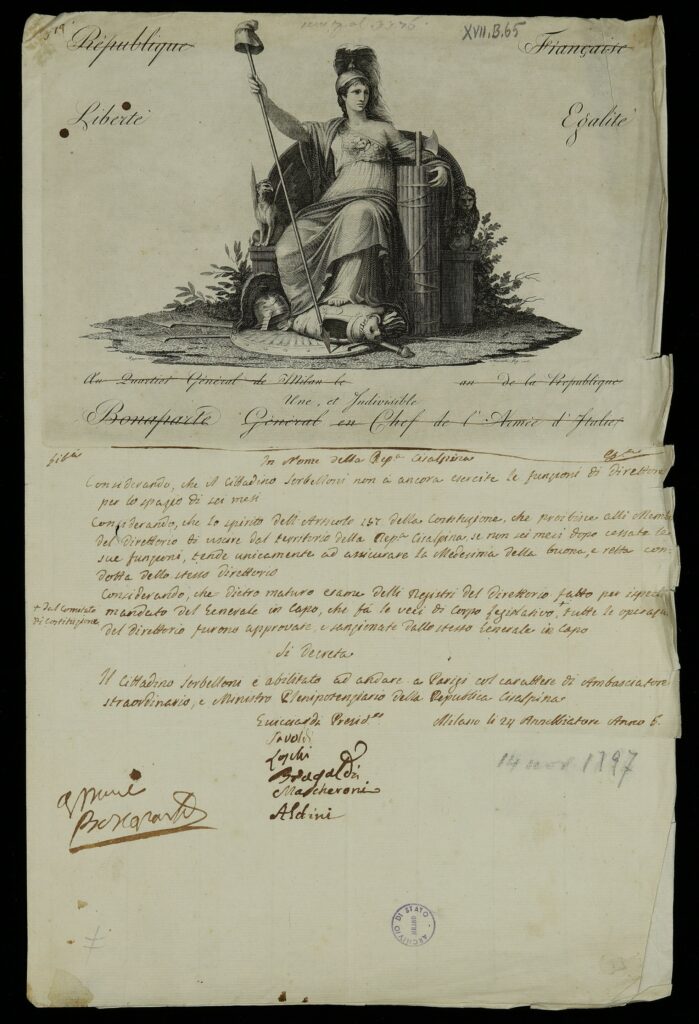 République Française
XVII.B.65
Liberté Egalité
Au Quartier Général de Milan le an de la République
Une, et Indivisible
Bonaparte Général en Chef de l'Armée d'Italie
In Nome della Repa Cisalpina
Considerando, che il Cittadino Serbelloni non à ancora esercite le funzioni di Direttore
per lo spazio di sei mesi
Considerando, che lo spirito dell'Articolo 157 della Costituzione, che proibisce alli Memb
del Direttorio di uscire dal territorio della Repa Cisalpina, se non sei mesi dopo cessate le
sue funzioni, tende unicamente ad assicurare la Medesima della buona, e retta con
dotta dello stesso Direttorio
Considerando, che dietro maturo esame delli Registri del Direttorio fatto per ispeci
+ dal Comitato
di Costituzione
mandato del Generale in Capo, che fà le veci di Corpo Legislativo+, tutte le operaz
del Direttorio furono approvate, e sanzionate dallo stesso Generale in Capo
Si decreta
Il Cittadino Serbelloni è abilitato ad andare a Parigi col carattere di Ambasciatore
straordinario, e Ministro Plenipotenziario della Republica Cisalpina
Guicciardi Presid.te Milano li 24 Annebbiatore Anno 6.
Savoldi
Loschi
Bragaldi
Mascheroni
Aldini
14 nov 1797
ARCHIVIO DI STATO MILANO